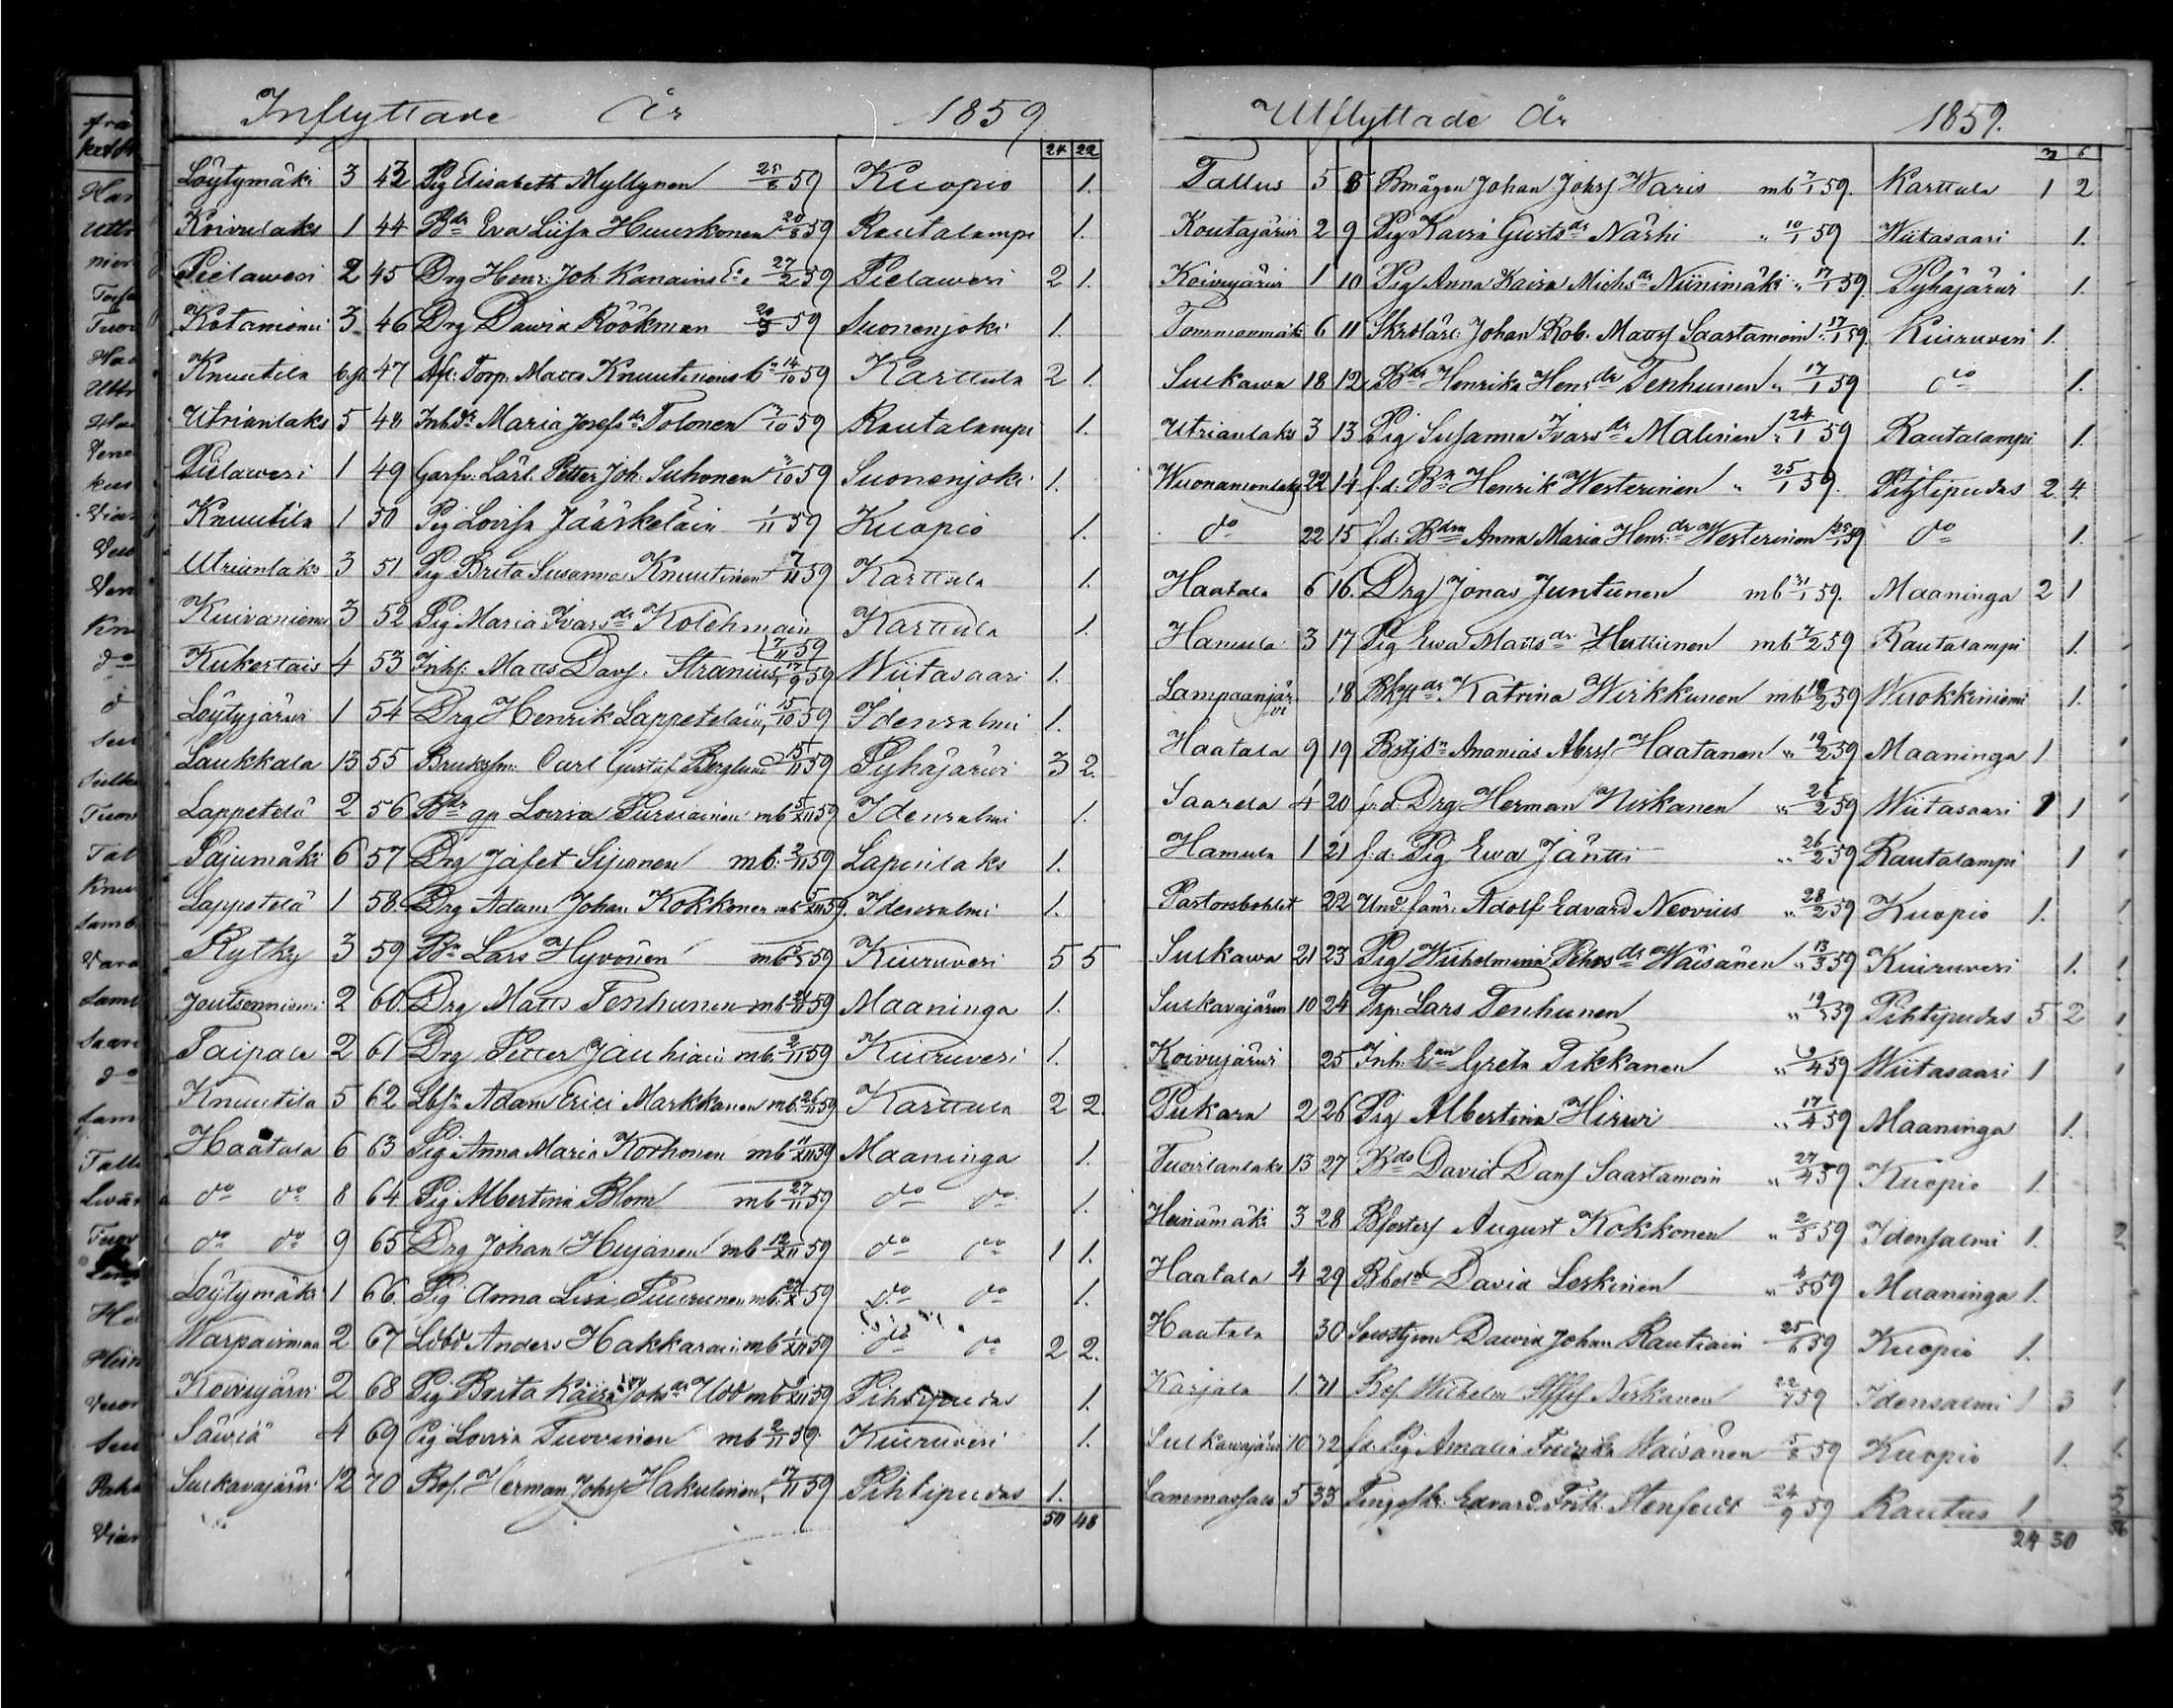 Inflyttade År 1859
24 22
Löytymäki 3 43 Pig Elisabeth Myllynen 25/8 59 Kuopio 1.
Koivulaks 1 44 Bdr Eva Liisa Huuskonen 20/8 59 Rautalampi 1.
Pielawesi 2 45 Drg Henr: Joh. Kanainen 27/2 59 Pielawesi 2 1.
Kotaniemi 3 46 Drg Dawid Röökman 59 Suonenjoki 1.
Knuutila 47 Afl: Torp. Matts Knuutinens 14/10 59 Karttula 2 1.
Utrianlaks 5 48 Inhdr Maria Josefsdr Tolonen 3/10 59 Rautalampi 1.
Pielawesi 1 49 Garfv: Lärl. Petter Joh. Suhonen 3/10 59 Suonenjoki 1.
Knuutila 1 50 Pig Lovisa Jääskeläin 1/11 59 Kuopio 1.
Utrianlaks 3 51 Pig Brita Susanna Knuutinen 7/11 59 Karttula 1.
Kuivaniemi 3 52 Pig Maria Ivarsdr Kolehmain Karttula 1.
7/11 59
Kukertais 4 53 Inhs: Matts Davs. Stranius 17/9 59 Wiitasaari 1.
Löytyjärwi 1 54 Drg Henrik Lappeteläin, 15/10 59 Idensalmi 1.
Laukkala 13 55 Bruksfm: Carl Gustaf Berglund 15/11 59 Pyhäjärwi 3 2.
Lappetelä 2 56 Bdr Lovisa Pursiainen mb 5/XII 59 Idensalmi 1.
Pajumäki 6 57 Drg Jafet Sijvonen mb. 2/11 59 Lapinlaks 1.
Lappetelä 1 58. Drg Adam Johan Kokkonen mb 5/XII 59. Idensalmi 1.
Rytky 3 59 Bn Lars Hyvönen mb 59 Kiuruvesi 5 5
Joutsenniemi 2 60. Drg Matts Tenhunen mb 59 Maaninga 1.
Taipale 2 61 Drg Petter Jauhiain mb. 2/11 59 Kiuruvesi 1.
Knuutila 5 62 Lbfn Adam Erici Markkanen mb. 26/11 59 Karttula 2 2.
Haatala 6 63 Pig Anna Maria Korhonen mb 11/XII 59 Maaninga 1.
do do 8 64 Pig Albertina Blom mb 27/11 59 do do 1.
do do 9 65 Drg Johan Hujanen mb 12/XII 59 do do 1 1.
Löytymäki 1 66. Pig Anna Lisa Puurunen mb. 59 do do 1.
Warpaismaa 2 67 Ldbd Anders Hakkarain mb 1/XII 59 do do 2 2.
Koivujärwi 2 68 Pig Brita Kaisa Johsdr Udd mb 59 Pihtipudas 1.
Säwiä 4 69 Pig Lovisa Tuovinen mb 2/11 59 Kiuruvesi 1.
Sulkavajärwi 12 70 Bof. Herman Johss Hakulinen, 17/11 59 Pihtipudas 1.
50 48
Utflyttade År 1859.
3 6
Tallus 5 8 Bmågen Johan Johss Waris mb 7/1 59. Karttula 1 2
Koutajärwi 2 9 Pig Kaisa Gustsdr Närhi " 10/1 59 Wiitasaari 1.
Koivujärwi 1 10 Pig Anna Kaisa Michsdr Niinimäki " 17/1 59. Pyhäjärwi 1.
Tommonmäki 6 11 Skrslärl: Johan Rob. Matts Saastamoin " 17/1 59. Kiuruvesi 1.
Sulkawa 18 12 Bdr Henrika Henrsdr Tenhunen " 17/1 59 do 1.
Utrianlaks 3 13 Pig Susanna Ivarsdr Malinen " 24/1 59 Rautalampi 1.
Wuonamonlaks 22 14 f.d. Bn Henrik Westerinen " 25/1 59. Pihtipudas 2. 4.
do 22 15 f.d. Bdm Anna Maria Henr:dr Westerinen 59. do 1.
Haatala 6 16. Drg Jonas Juntunen mb 31/1 59. Maaninga 2 1
Hamula 3 17 Pig Ewa Mattsdr Huttunen mb 7/2 59 Rautalampi 1.
Lampaanjärvi 18 Katrina Wirkkunen mb 19/2 59 Wuokkiniemi 1.
Haatala 9 19 Ananias Abrss Haatanen " 19/2 59 Maaninga 1.
Saarela 4 20 f.d. Drg Herman Niskanen " 26/2 59 Wiitasaari 1 1
Hamula 1 21 f.d. Pig Ewa Jäntti " 26/2 59 Rautalampi 1
Pastorsbohlet 22 Und. fänr: Adolf Edvard Neovius " 28/2 59 Kuopio 1.
Sulkawa 21 23 Pig Wilhelmina Pehrsdr Wäisänen " 13/3 59 Kiuruvesi 1.
Sulkavajärwi 10 24 Trp: Lars Tenhunen " 59 Pihtipudas 5 2
Koivujärwi 25 Inh: Greta Tikkanen " 9/4 59 Wiitasaari 1
Pukara 2 26 Pig Albertina Hirwi " 17/4 59 Maaninga 1.
Tuovilanlaks 13 27 Bds David Dans Saastamoin " 27/4 59 Kuopio 1.
Heinämäki 3 28 Bfosters August Kokkonen " 2/5 59 Idensalmi 1.
Haatala 4 29 David Leskinen " 59 Maaninga 1.
Haatala 30 Dawid Johan Rautiain 25/6 59 Kuopio 1.
Karjala 1. 31 Bof. Wilhelm Niskanen 22/7 59 Idensalmi 1 3
Sulkawajärwi 10 32 f.d. Pig Amalia Fredrika Waisänen 5/8 59 Kuopio 1.
Lammassalo 5 33 Tingsskr: Edvard Frith. Stenfeldt 24/9 59 Rautus 1
24 30